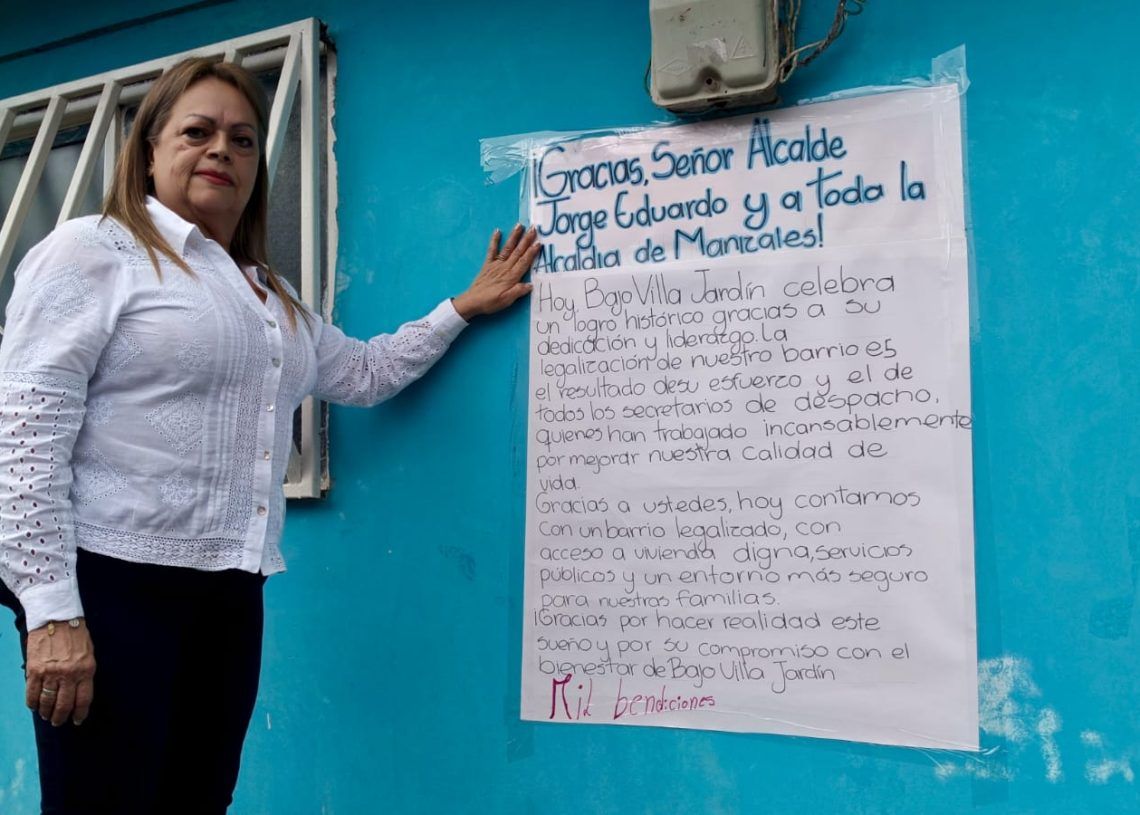 ¡Gracias, Señor Alcalde
Jorge Eduardo y a toda la
Alcaldia de Manizales!
Hoy, Bajo Villa Jardín celebra
un logro histórico gracias a su
dedicación y liderazgo. la
legalización de nuestro barrio es
el resultado desu esfuerzo y el de
todos los secretarios de despacho,
quienes han trabajado incansablemente
por mejorar nuestra calidad de
vida.
Gracias a ustedes, hoy contamos
con un barrio legalizado, con
acceso a vivienda digna, servicios
públicos y un entorno más seguro
para nuestras familias.
¡Gracias por hacer realidad este
sueño y por su compromiso con el
bienestar de Bajo Villa Jardín
Mil bendiciones